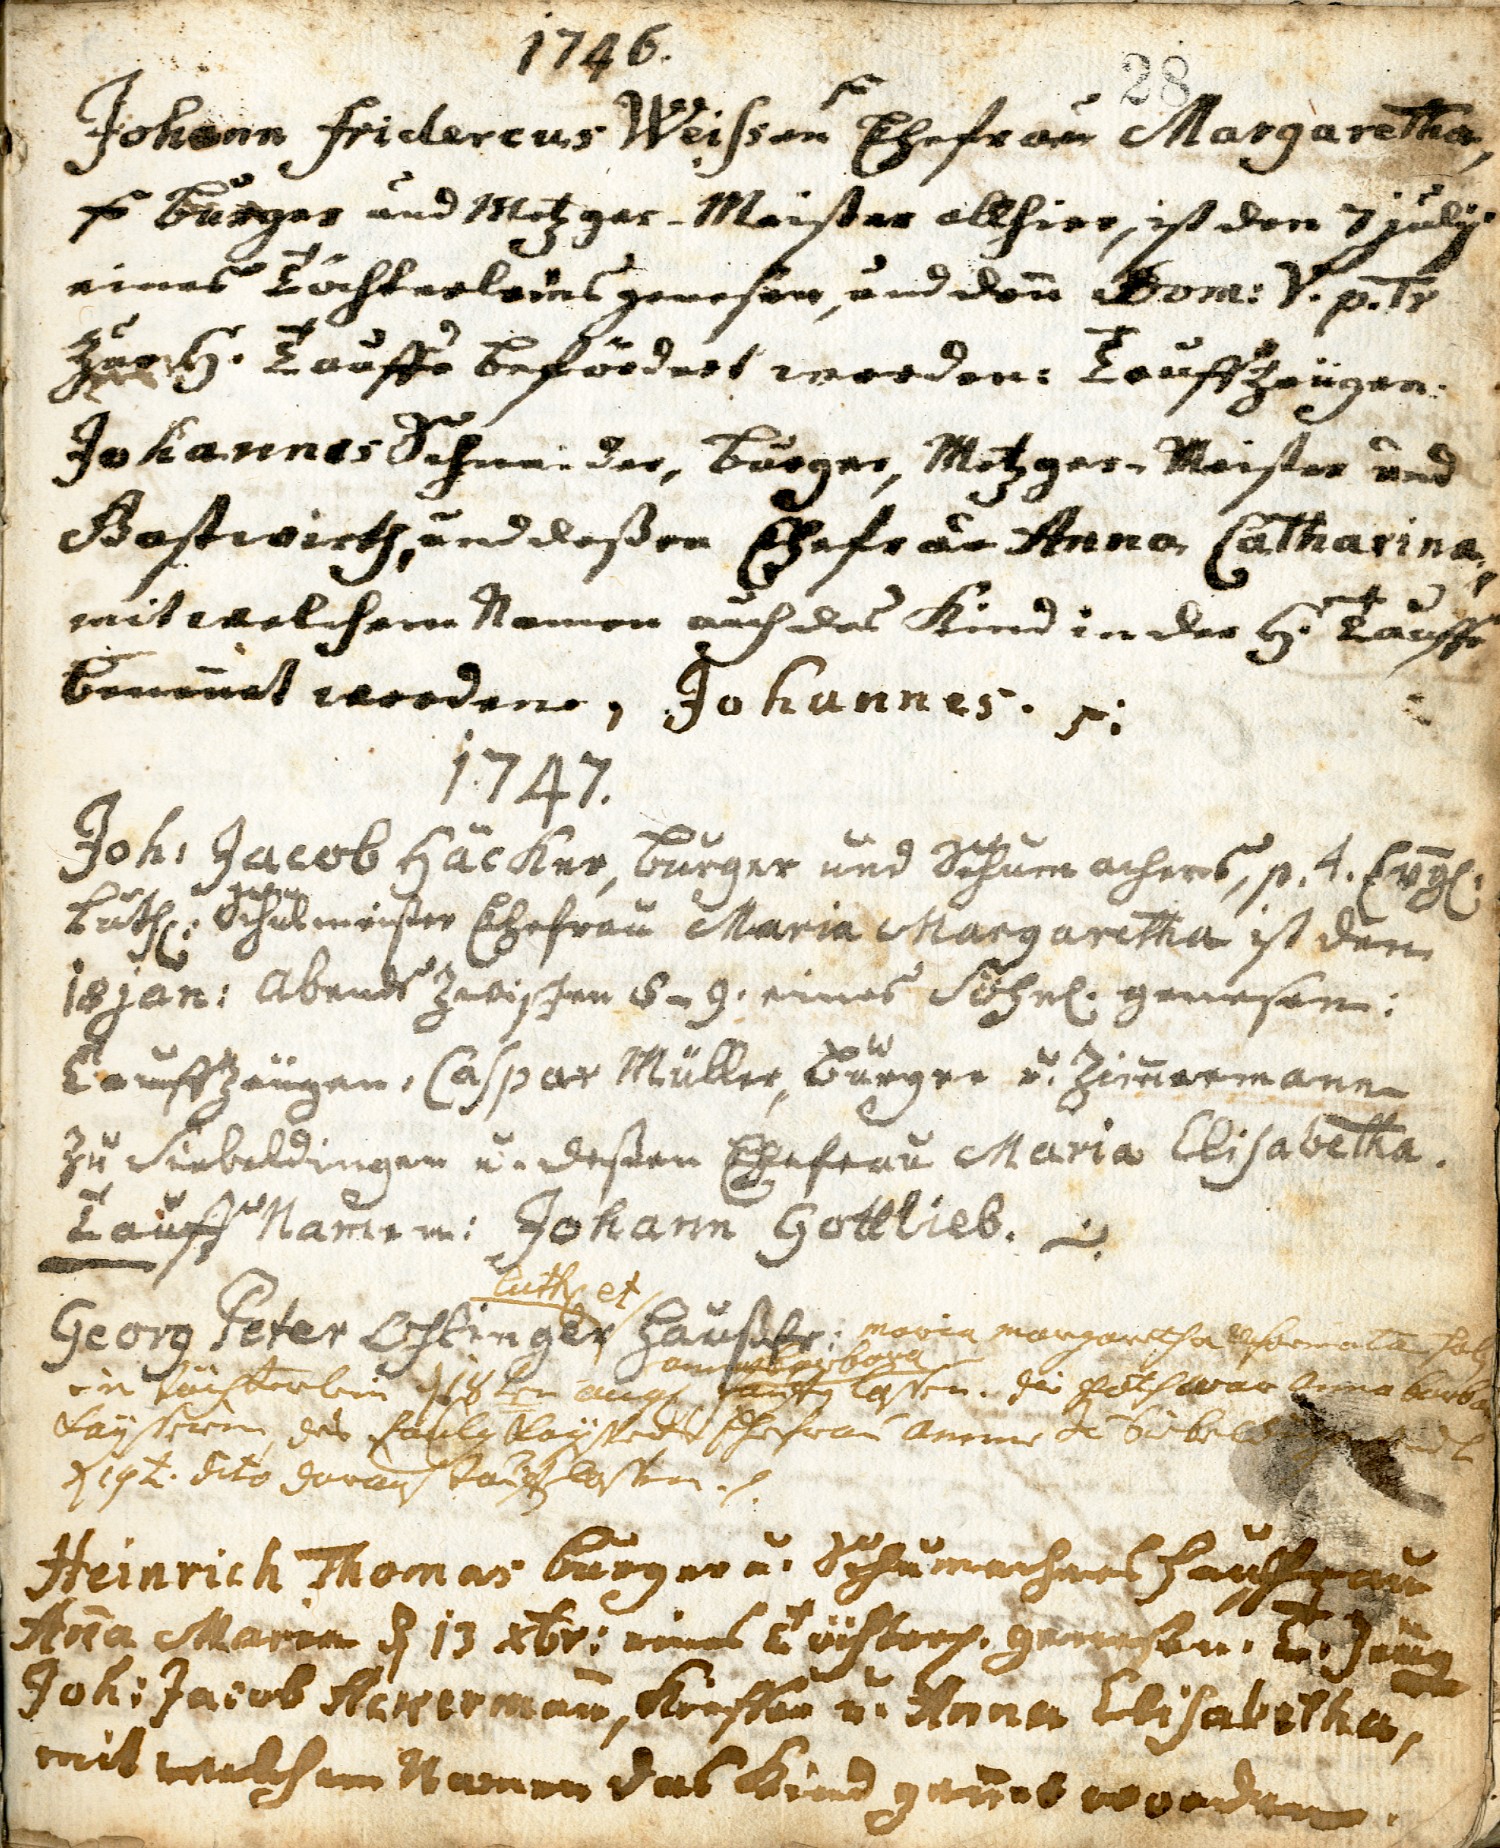 1746.
28
Johann Fridericus Weissen Ehefrau Margaretha,
Burger und Metzger-Meister allhier, ist den 7 julij
eines Töchterleins genesen, und den Dom: V. p. Tr
zur H. Tauffe befördert worden: Tauffzeügen:
Johannes Schneider, burger, Metzger-Meister und
Gastwirth, und deßen Ehefrau Anna Catharina,
mit welchem Namen auch das Kind in der H. Tauffe
benennet worden, Johannes.
1747.
Joh: Jacob Häcker, burger und Schumachers, p. t. Evgl:
Luth: Schulmeister Ehefrau Maria Margaretha ist den
18 jan: Abends zwischen 8-9. eines Söhnl. genesen:
Tauffzeügen. Caspar Müller, Burger u. Zimmermann
zu Siebeldingen u. deßen Ehefrau Maria Elisabetha.
Tauff Namen: Johann Gottlieb.
luth. et
Georg Peter haußfr: maria margaretha reformata
anna barbara
ein töchterlein 18ten aug lassen. die goth war anna barbara
Ehefrau
dito darauf tauffen lassen.
Heinrich Thomas burger u. Schumachers haußfrau
Anna Maria d 13 xbr: eines Töchterl. genesen. T. Zeüg
Joh: Jacob Ackermann, Kieffer u. Anna Elisabetha,
mit welchem Namen das Kind genent worden.